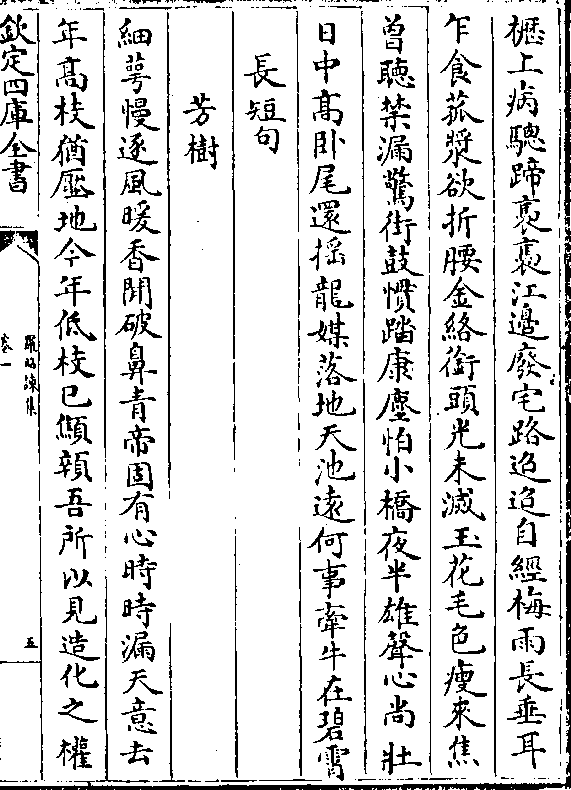 櫪上病驄蹄褭褭江邊廢宅路迢迢自經梅雨長垂耳
乍食菰漿欲折腰金絡銜頭光未滅玉花毛色瘦來焦
曾聽禁漏驚街鼓慣踏康塵怕小橋夜半雄聲心尚壯
日中高臥尾還搖龍媒落地天池遠何事牽牛在碧霄
長短句
芳樹
細蕚慢逐風暖香閒破鼻青帝固有心時時漏天意去
年高枝猶壓地今年低枝已顦顇吾所以見造化之權
欽定四庫全書
羅昭諫集
卷一
五